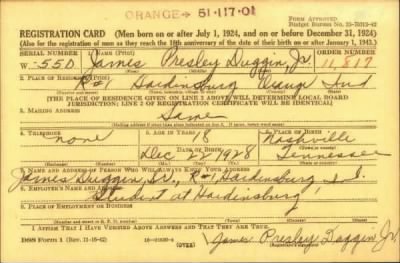 ORANGE → 51-117.01
Form Approved
REGISTRATION CARD (Men born on or after July 1, 1924, and on or before December 31, 1924)
(Also for the registration of men as they reach the 18th anniversary of the date of their birth on or after January 1, 1943.)
SERIAL NUMBER 1. NAME (Print) ORDER NUMBER
W 550 James Presley Duggin, Jr. 11,817
2. PLACE OF RESIDENCE (Print)
Hardinsburg Ind
[THE PLACE OF RESIDENCE GIVEN ON LINE 2 ABOVE WILL DETERMINE LOCAL BOARD
JURISDICTION; LINE 2 OF REGISTRATION CERTIFICATE WILL BE IDENTICAL]
3. MAILING ADDRESS
Same
4. TELEPHONE 5. AGE IN YEARS 6. PLACE OF BIRTH
none 18 Nashville
DATE OF BIRTH
Dec Tennessee
7. NAME AND ADDRESS OF PERSON WHO WILL ALWAYS KNOW YOUR ADDRESS
James Duggin, Sr., R-1 Hardinsburg
8. EMPLOYER'S NAME AND ADDRESS
Student at Hardinsburg
9. PLACE OF EMPLOYMENT OR BUSINESS
I AFFIRM THAT I HAVE VERIFIED ABOVE ANSWERS AND THAT THEY ARE TRUE.
DSS Form 1 (Rev. 11-16-42) (OVER) James Presley Duggin Jr